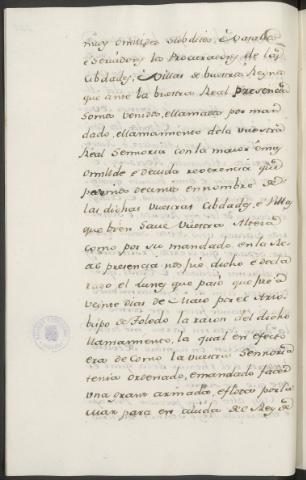 muy omildes subditos, è vasallos
è Servidores los Procuradores de las
Cibdades, è Villas de vuestros Reynos
que ante la vuestra Real presencia
somos venidos, e llamados por man
dado, e llamamiento de la vuestra
Real Senhoria con la maior è muy
omilde e devida reverencia que
podemos decimos en nombre de
las dichas vuestras Cibdades, è Villas
que bien save vuestra Alteza
como por su mandado en la Re
al presencia nos fue dicho e decla
rado el lunes que pasó que fue à
veinte dias de Maio por el Arzo
bispo de Toledo la razon del dicho
llamamiento, la qual en efecto
era de como la vuestra Senhoria
tenia ordenado, e mandado facer
una grant armada, e flota por la
mar para en aiuda del Rey de